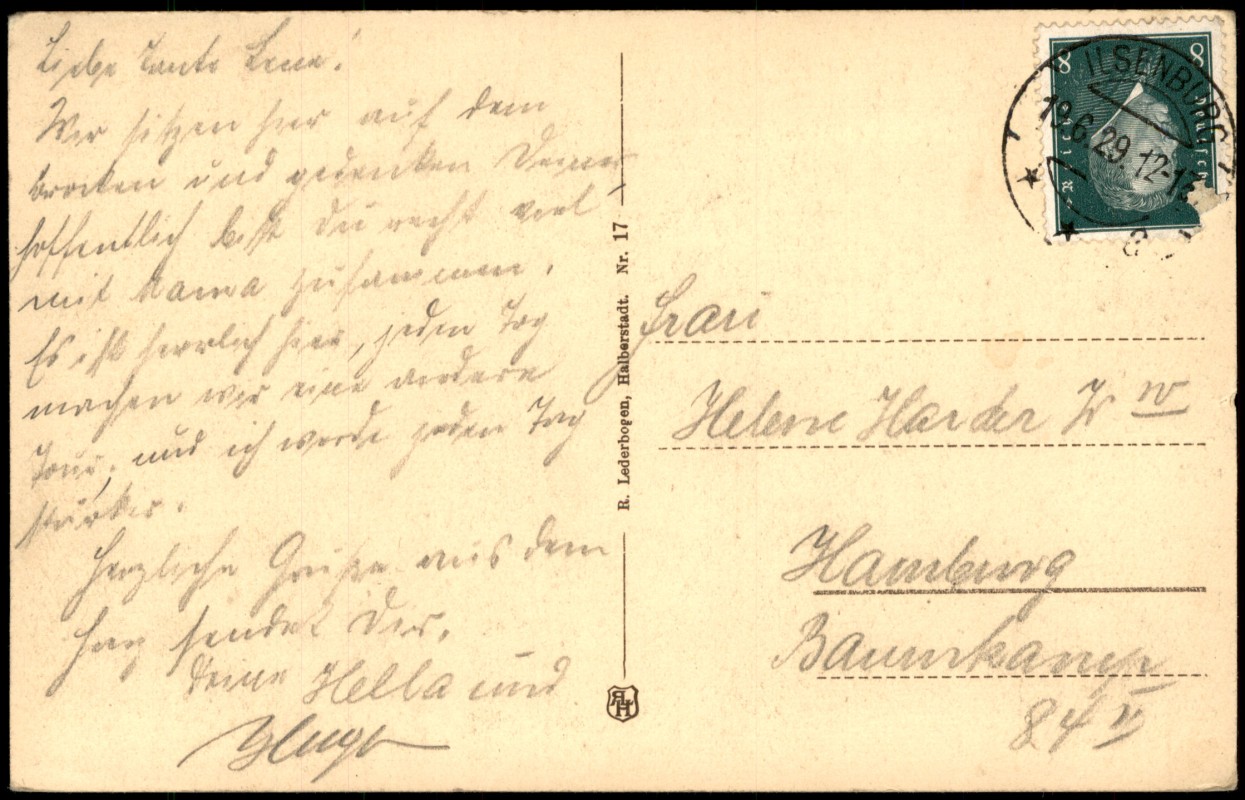 Liebe Tante Lene!
Wir sitzen hier auf dem
Brocken und gedenken Deiner,
hoffentlich bist Du recht viel
mit Mama zusammen.
Es ist herrlich hier, jeden Tag
machen wir eine andere
Tour, und ich werde jeden Tag
stärker.
Herzliche Grüße aus dem
Harz sendet Dir,
Deine Hella und
R. Lederbogen, Halberstadt. Nr. 17
RH
8 8
Deutsches Reich
ILSENBURG
19.6.29. 12-1
Frau
Helene Harder Ww
Hamburg
Baumkamp
84 V